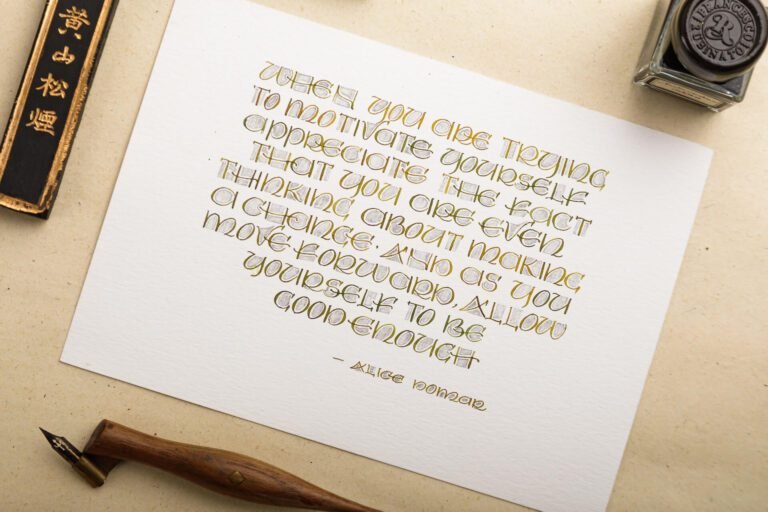 WHEN YOU ARE TRYING
TO MOTIVATE YOURSELF
APPRECIATE THE FACT
THAT YOU ARE EVEN
THINKING ABOUT MAKING
A CHANGE. AND AS YOU
MOVE FORWARD, ALLOW
YOURSELF TO BE
GOOD ENOUGH
— ALICE DOMAR
黄山松煙